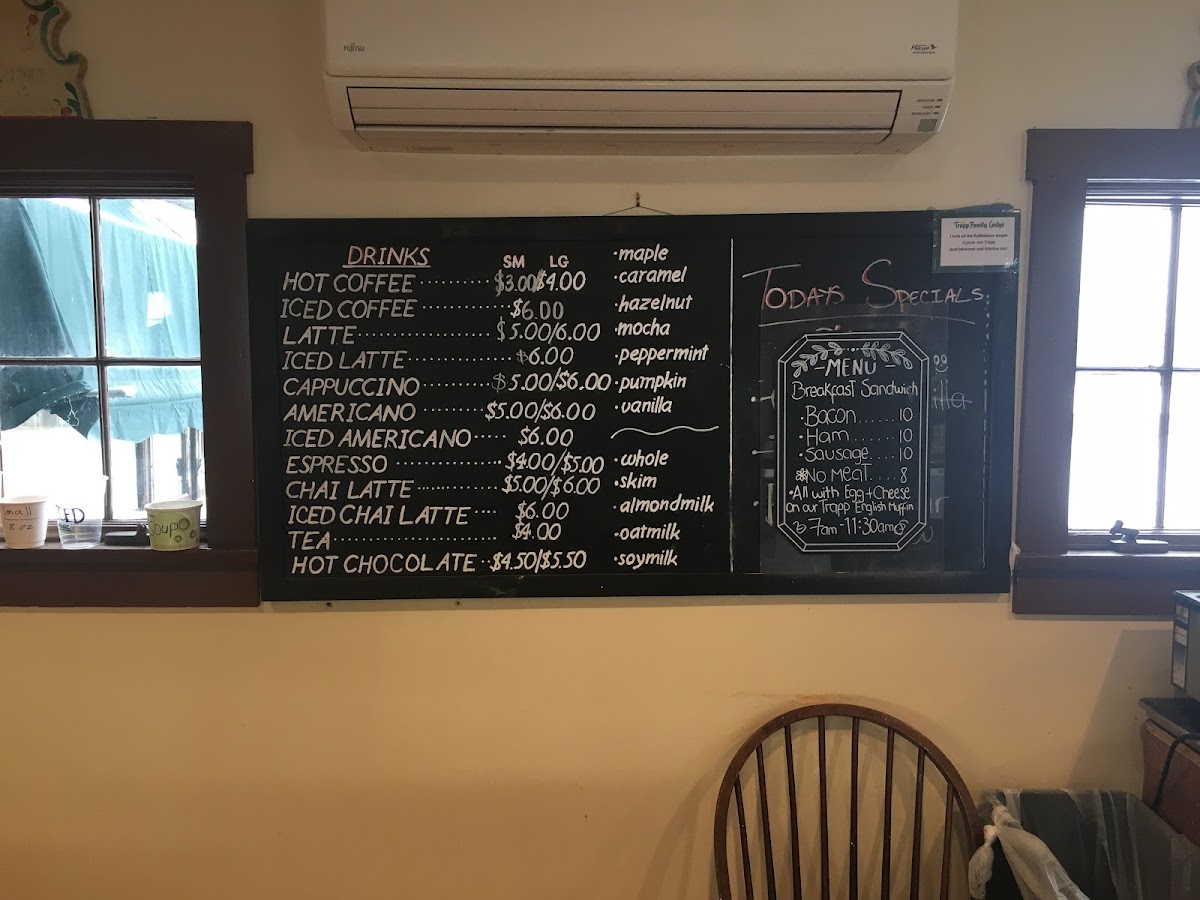 FUJITSU
DRINKS
SM LG
HOT COFFEE .......... $3.00/$4.00
ICED COFFEE ............ $6.00
LATTE ................ $5.00/6.00
ICED LATTE ............ $6.00
CAPPUCCINO ........ $5.00/$6.00
AMERICANO ........ $5.00/$6.00
ICED AMERICANO ..... $6.00
ESPRESSO ............ $4.00/$5.00
CHAI LATTE .......... $5.00/$6.00
ICED CHAI LATTE .... $6.00
TEA .................... $4.00
HOT CHOCOLATE .. $4.50/$5.50
·maple
·caramel
·hazelnut
·mocha
·peppermint
·pumpkin
·vanilla
·whole
·skim
·almondmilk
·oatmilk
·soymilk
TODAYS SPECIALS
MENU
Breakfast Sandwich
·Bacon ...... 10
·Ham ...... 10
·Sausage .... 10
*NO MEAT .... 8
·All with Egg + Cheese
on our Trapp English Muffin
7am-11:30am
Trapp Family Lodge
small
8 oz